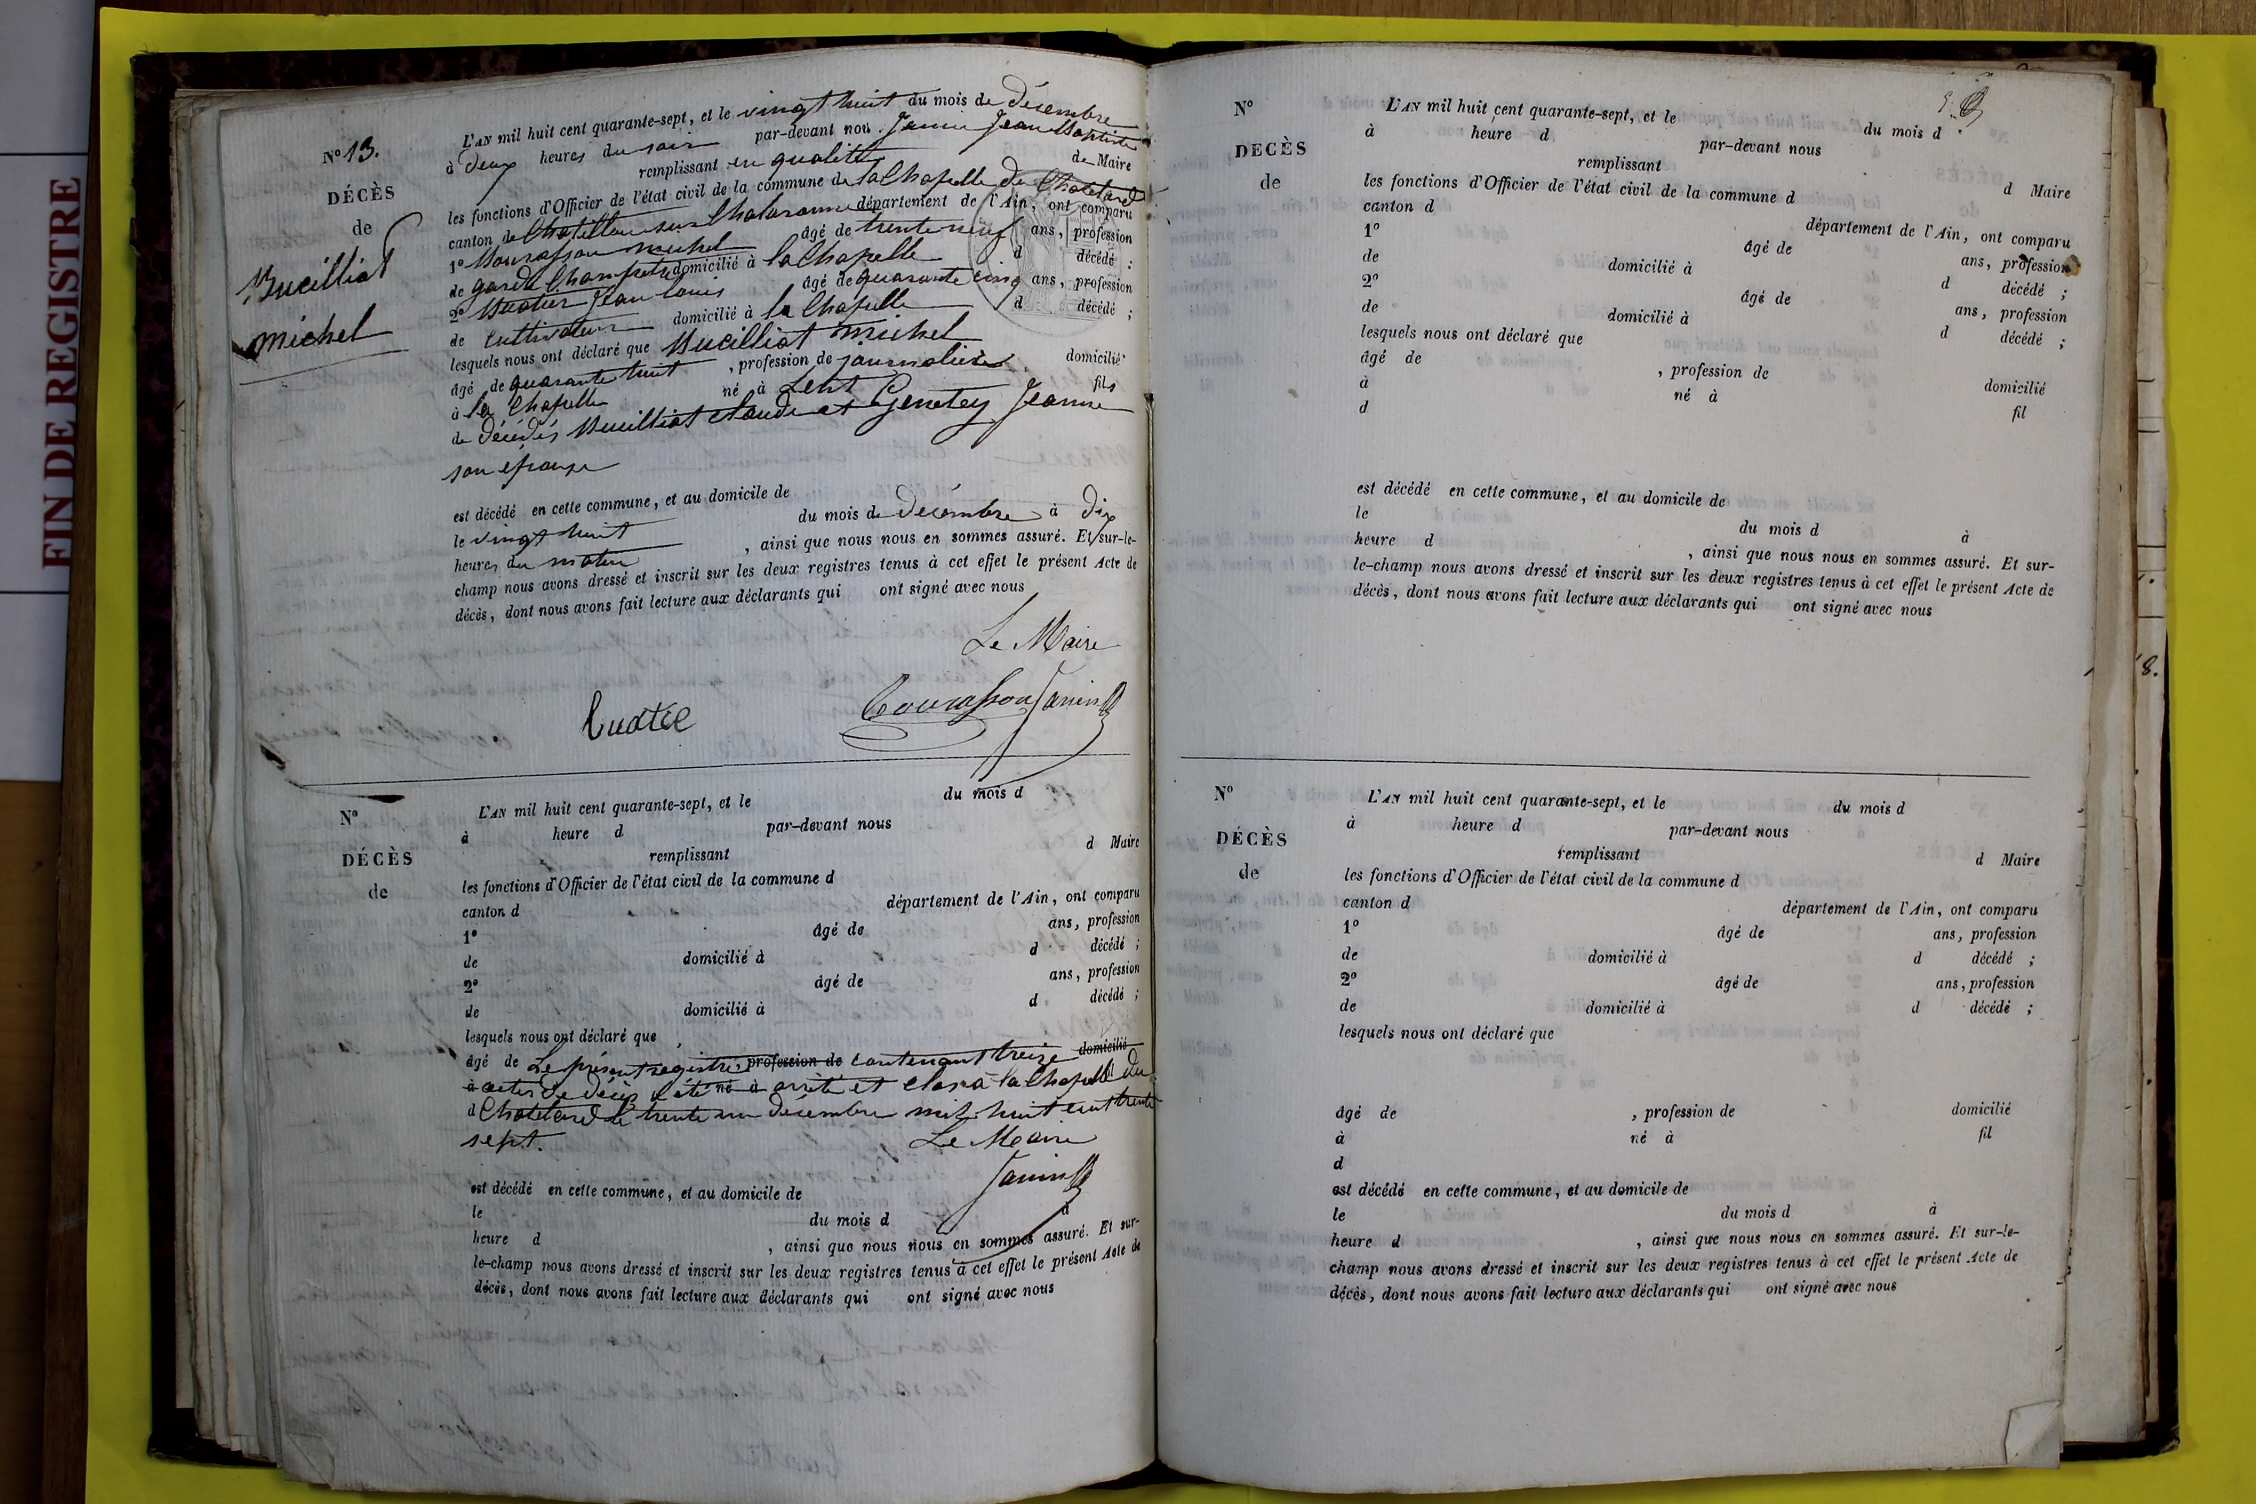 FIN DE REGISTRE
N° 13.
DÉCÈS
de
Bucilliat
michel
L'AN mil huit cent quarante-sept, et le vingt huit du mois de Décembre
à deux heures du soir par-devant nous Janin Jean Baptiste
remplissant en qualité de Maire
les fonctions d'Officier de l'état civil de la commune de la Chapelle du Chatelard
canton de Chatillon sur Chalaronne département de l'Ain, ont comparu
1° Bourasson michel âgé de trente neuf ans, profession
de garde Champetre domicilié à la Chapelle d décédé ;
2° Buatier Jean louis âgé de quarante cinq ans, profession
de cultivateur domicilié à la Chapelle d décédé ;
lesquels nous ont déclaré que Bucilliat michel
âgé de quarante huit , profession de journalier domicilié
à la Chapelle né à Lent fils
de décédés Bucilliat claude et Genetey Jeanne
son épouse
est décédé en cette commune, et au domicile de
le vingt huit du mois de Décembre à Dix
heures du matin , ainsi que nous nous en sommes assuré. Et sur-le-
champ nous avons dressé et inscrit sur les deux registres tenus à cet effet le présent Acte de
décès, dont nous avons fait lecture aux déclarants qui ont signé avec nous
Le Maire
Buatié Bourasson Janin
N°
DÉCÈS
de
L'AN mil huit cent quarante-sept, et le du mois d
à heure d par-devant nous
remplissant d Maire
les fonctions d'Officier de l'état civil de la commune d
canton d département de l'Ain, ont comparu
1° âgé de ans, profession
de domicilié à d décédé ;
2° âgé de ans, profession
de domicilié à d décédé ;
lesquels nous ont déclaré que
âgé de Le présent registre, profession de contenant treize domicilié
à actes de décès a été né à arrêté et clos à la Chapelle du
d Chatelard le trente un décembre mil huit cent trente
sept. Le Maire
Janin
est décédé en cette commune, et au domicile de
le du mois d à
heure d , ainsi que nous nous en sommes assuré. Et sur-
le-champ nous avons dressé et inscrit sur les deux registres tenus à cet effet le présent Acte de
décès, dont nous avons fait lecture aux déclarants qui ont signé avec nous
N°
DÉCÈS
de
L'AN mil huit cent quarante-sept, et le du mois d
à heure d par-devant nous
remplissant d Maire
les fonctions d'Officier de l'état civil de la commune d
canton d département de l'Ain, ont comparu
1° âgé de ans, profession
de domicilié à d décédé ;
2° âgé de ans, profession
de domicilié à d décédé ;
lesquels nous ont déclaré que
âgé de , profession de domicilié
à né à fil
d
est décédé en cette commune, et au domicile de
le du mois d à
heure d , ainsi que nous nous en sommes assuré. Et sur-
le-champ nous avons dressé et inscrit sur les deux registres tenus à cet effet le présent Acte de
décès, dont nous avons fait lecture aux déclarants qui ont signé avec nous
N°
DÉCÈS
de
L'AN mil huit cent quarante-sept, et le du mois d
à heure d par-devant nous
remplissant d Maire
les fonctions d'Officier de l'état civil de la commune d
canton d département de l'Ain, ont comparu
1° âgé de ans, profession
de domicilié à d décédé ;
2° âgé de ans, profession
de domicilié à d décédé ;
lesquels nous ont déclaré que
âgé de , profession de domicilié
à né à fil
d
est décédé en cette commune, et au domicile de
le du mois d à
heure d , ainsi que nous nous en sommes assuré. Et sur-le-
champ nous avons dressé et inscrit sur les deux registres tenus à cet effet le présent Acte de
décès, dont nous avons fait lecture aux déclarants qui ont signé avec nous
8.